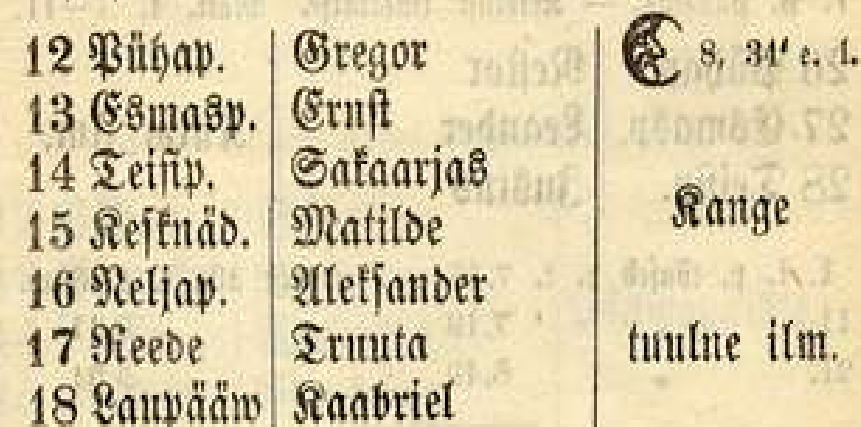 12 Pühap. Gregor 8, 34' e. l.
13 Esmasp. Ernst
14 Teisip. Sakaarjas
15 Kesknäd. Matilde Kange
16 Neljap. Aleksander
17 Reede Truuta tuulne ilm.
18 Laupääw Kaabriel